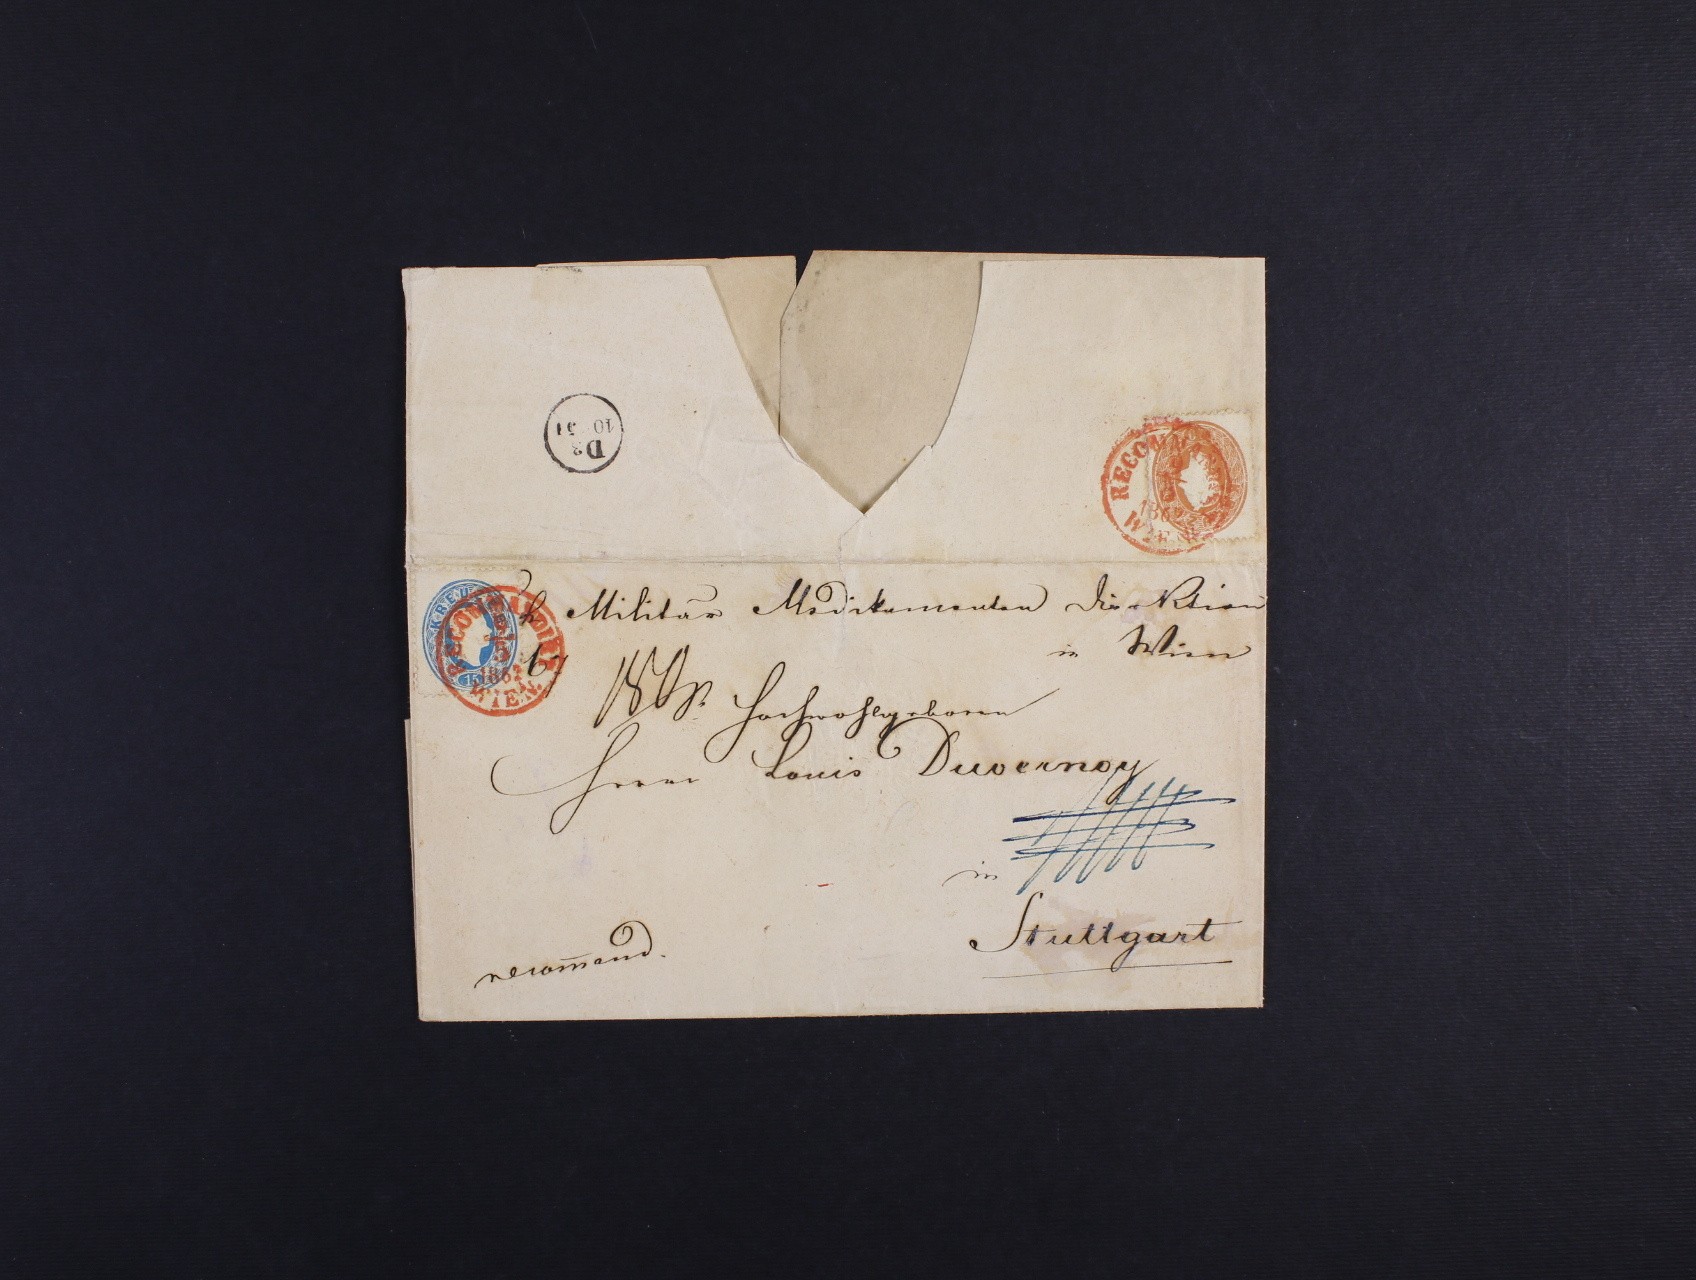 D2
10 51
RECOMMANDIRT
1862
WIEN
KREU
15
RECOMMANDIRT
1862
WIEN.
k Militär Medikamenten Direktion
in Wien
Hochwohlgeboren
Herrn Louis Duvernoy
in
Stuttgart
recomand.